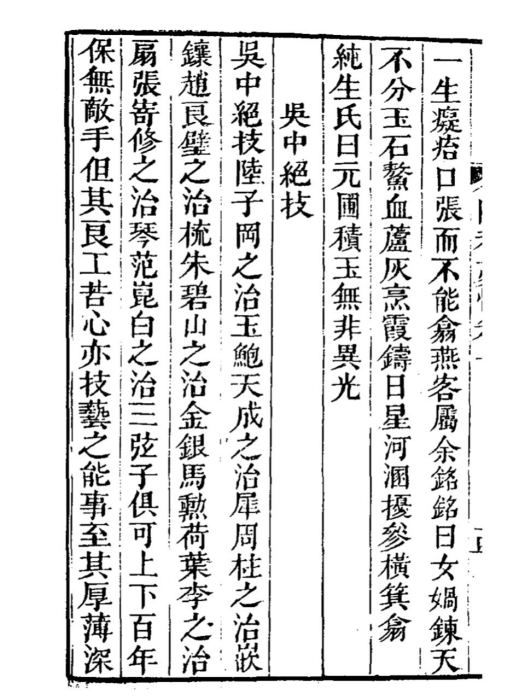 一生癡㾑口張而不能翕燕客屬余銘銘曰女媧鍊天
不分玉石鰲血蘆灰烹霞鑄日星河溷擾參橫箕翕
純生氏曰元圃積玉無非異光
吳中絕技
吳中絕技陸子岡之治玉鮑天成之治犀周柱之治嵌
鑲趙良璧之治梳朱碧山之治金銀馬勳荷葉李之治
扇張寄修之治琴范崑白之治三弦子俱可上下百年
保無敵手但其良工苦心亦技藝之能事至其厚薄深